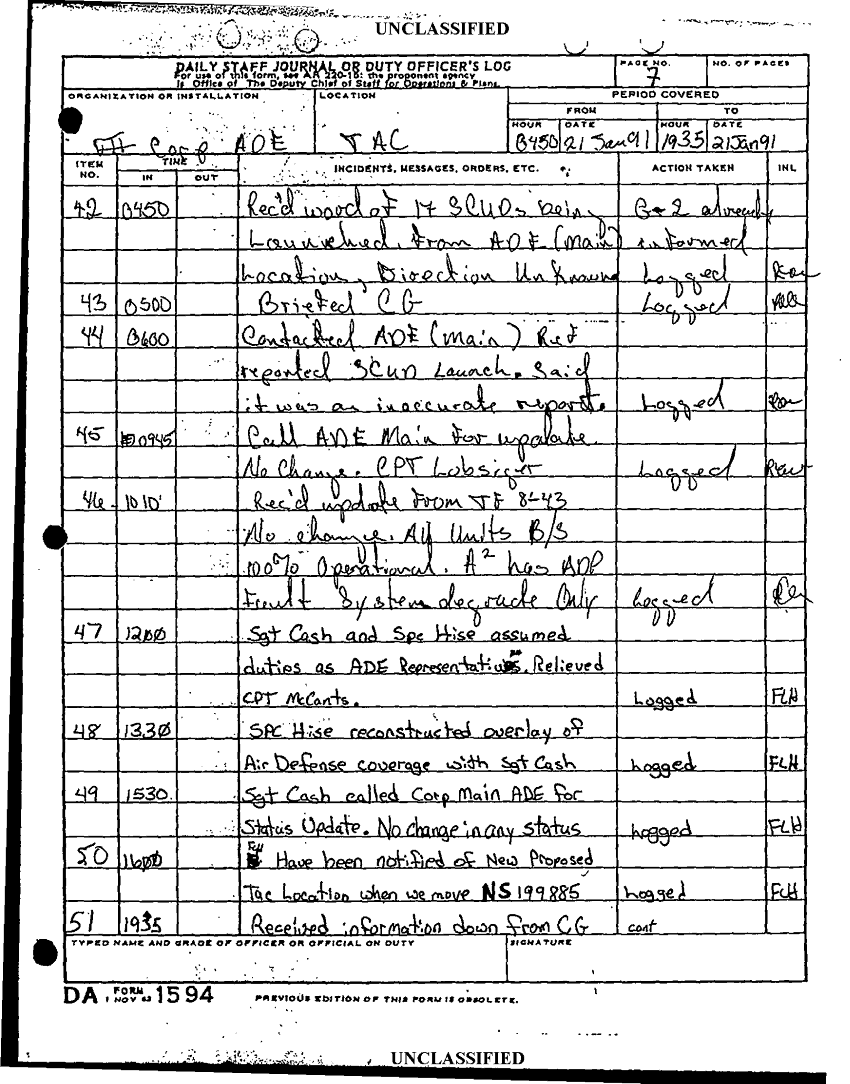 UNCLASSIFIED
DAILY STAFF JOURNAL OR DUTY OFFICER'S LOG
For use of this form, see AR 220-15; the proponent agency
is Office of The Deputy Chief of Staff for Operations & Plans.
PAGE NO.
7
NO. OF PAGES
ORGANIZATION OR INSTALLATION
Corp ADE
LOCATION
TAC
PERIOD COVERED
FROM
TO
HOUR DATE HOUR DATE
0450 21 Jan 91 1935 21 Jan 91
ITEM NO. TIME IN OUT INCIDENTS, MESSAGES, ORDERS, ETC. ACTION TAKEN INL
42 0450 Rec'd word of 17 SCUDs being G-2 already
Launched, From ADE (Main) informed
Location, Direction UnKnown Logged
43 0500 Briefed CG Logged
44 0600 Contacted ADE (Main) Ref
reported SCUD Launch. Said
it was an inaccurate report. Logged
45 0945 Call ADE Main for update.
No Change. CPT Lobsiger Logged
46. 1010 Rec'd update From TF 8-43
No change. All Units B/S
100% Operational. A² has ADP
Fault System degrade Only Logged
47 1200 Sgt Cash and Spc Hise assumed
duties as ADE Representatives. Relieved
CPT McCants. Logged FLH
48 1330 SPC Hise reconstructed overlay of
Air Defense coverage with Sgt Cash Logged FLH
49 1530 Sgt Cash called Corp Main ADE for
Status Update. No change in any status Logged FLH
50 1600 FLH Have been notified of New Proposed
Tac Location when we move NS 199885 Logged FLH
51 1935 Received information down from CG cont
TYPED NAME AND GRADE OF OFFICER OR OFFICIAL ON DUTY
SIGNATURE
DA FORM 1 NOV 62 1594
PREVIOUS EDITION OF THIS FORM IS OBSOLETE.
UNCLASSIFIED